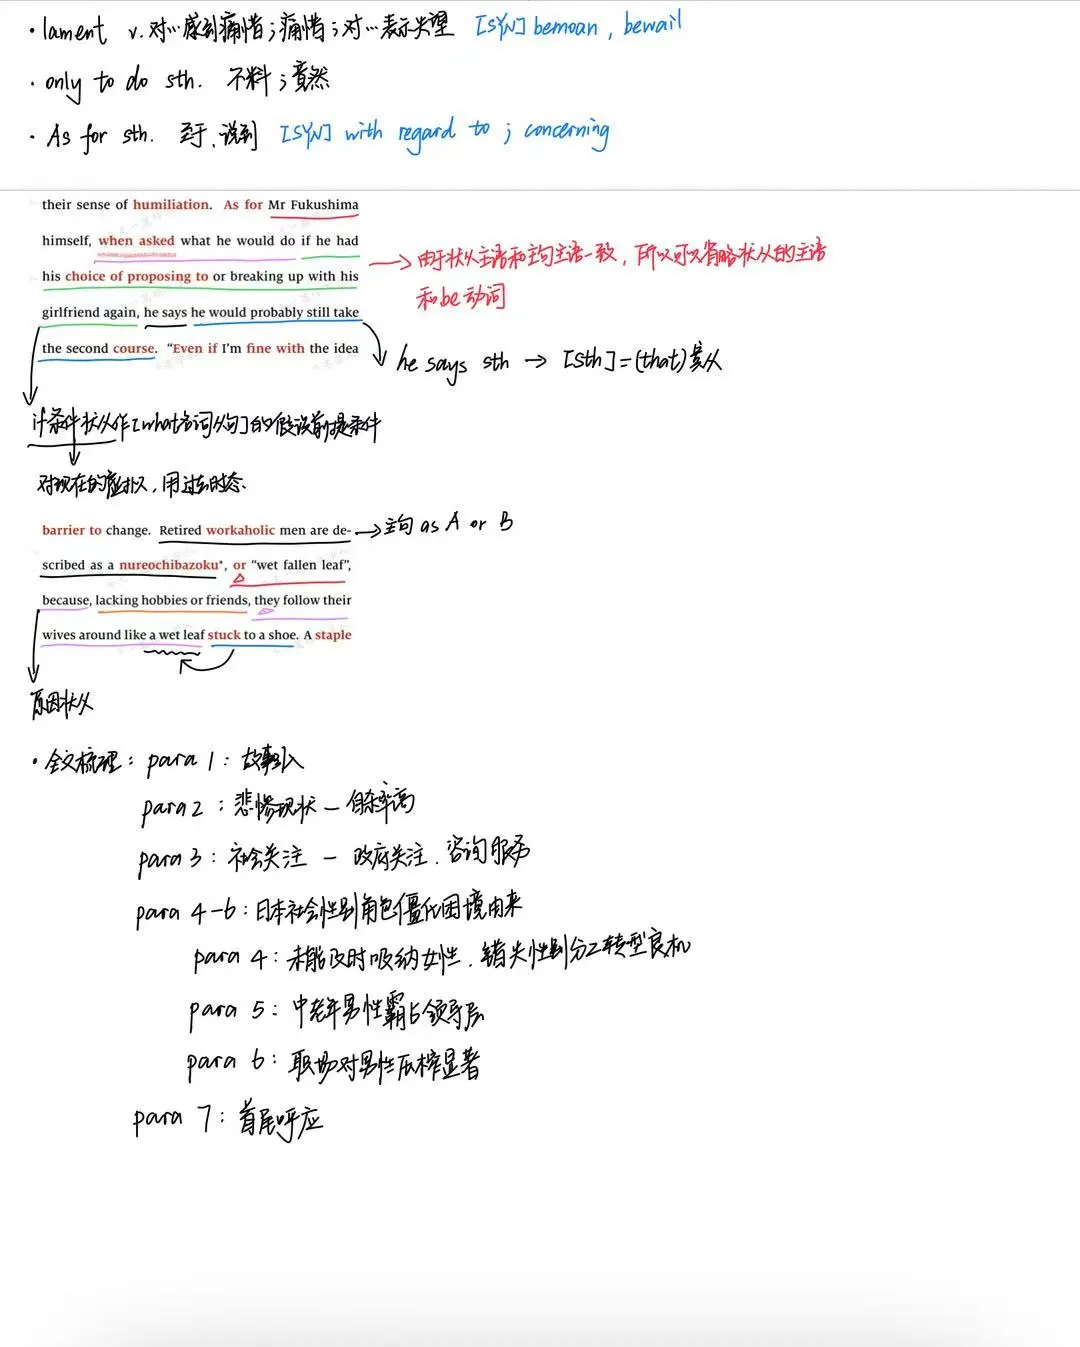 · lament v. 对…感到痛惜；痛惜；对…表示失望 [SYN] bemoan, bewail
· only to do sth. 不料；竟然
· As for sth. 至于，说到 [SYN] with regard to ; concerning
their sense of humiliation. As for Mr Fukushima
himself, when asked what he would do if he had
his choice of proposing to or breaking up with his
girlfriend again, he says he would probably still take
the second course. “Even if I’m fine with the idea
由于状从主语和主句主语一致，所以可以省略状从的主语
和be动词
he says sth → [sth] = (that) 宾从
if条件状从作[what名词从句]的假设前提条件
对现在的虚拟，用过去时态.
barrier to change. Retired workaholic men are de-
scribed as a nureochibazoku*, or “wet fallen leaf”,
because, lacking hobbies or friends, they follow their
wives around like a wet leaf stuck to a shoe. A staple
→主句 as A or B
原因状从
· 全文梳理：para 1：故事引入
para 2：悲惨现状 — 自杀率高
para 3：社会关注 — 政府关注、咨询服务
para 4-6：日本社会性别角色僵化困境由来
para 4：未能及时吸纳女性，错失性别分工转型良机
para 5：中老年男性霸占领导层
para 6：职场对男性压榨显著
para 7：首尾呼应